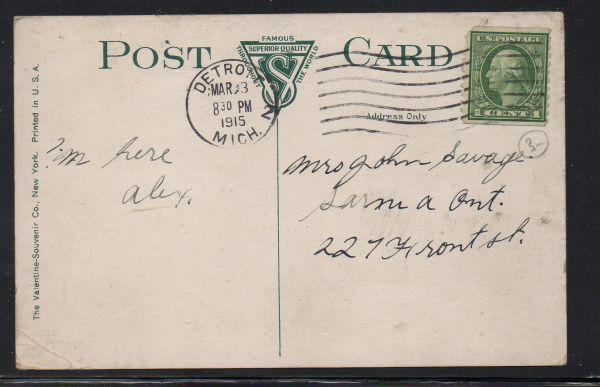 POST CARD
FAMOUS
THROUGHOUT
SUPERIOR QUALITY
THE WORLD
VS
DETROIT
MAR 3
8 30 PM
1915
MICH.
U.S. POSTAGE
1 CENT 1
Address Only
3-
I'm here
alex.
Mrs John Savage
Sarnia Ont.
227 Front st.
The Valentine-Souvenir Co., New York. Printed in U. S. A.